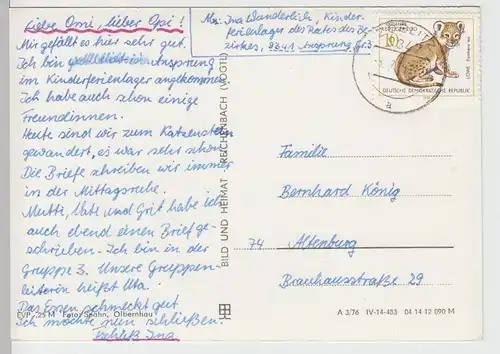 Liebe Omi, lieber Opi!
Mir gefällt es hier sehr gut.
Ich bin in Ansprung
im Kinderferienlager angekommen.
Ich habe auch schon einige
Freundinnen.
Heute sind wir zum Katzenstein
gewandert, es war sehr schön.
Die Briefe schreiben wir immer
in der Mittagsruhe.
Mutti, Vati und Grit habe ich
auch ebend einen Brief ge-
schrieben. Ich bin in der
Gruppe 3. Unsere Gruppen-
leiterin heißt Uta.
Das Essen schmeckt gut.
Ich möchte nun schließen.
Ina
EVP -,25 M Foto: Spohn, Olbernhau
Abs.: Ina Wunderlich, Kinder-
ferienlager des Rates des Be-
zirkes, 9341 Ansprung Nr. 3
BILD UND HEIMAT REICHENBACH (VOGTL)
10
LÖWE
DEUTSCHE DEMOKRATISCHE REPUBLIK
a
Familie
Bernhard König
74 Altenburg
Brauhausstraße 29
A 3/76 IV-14-483 04 14 12 090 M